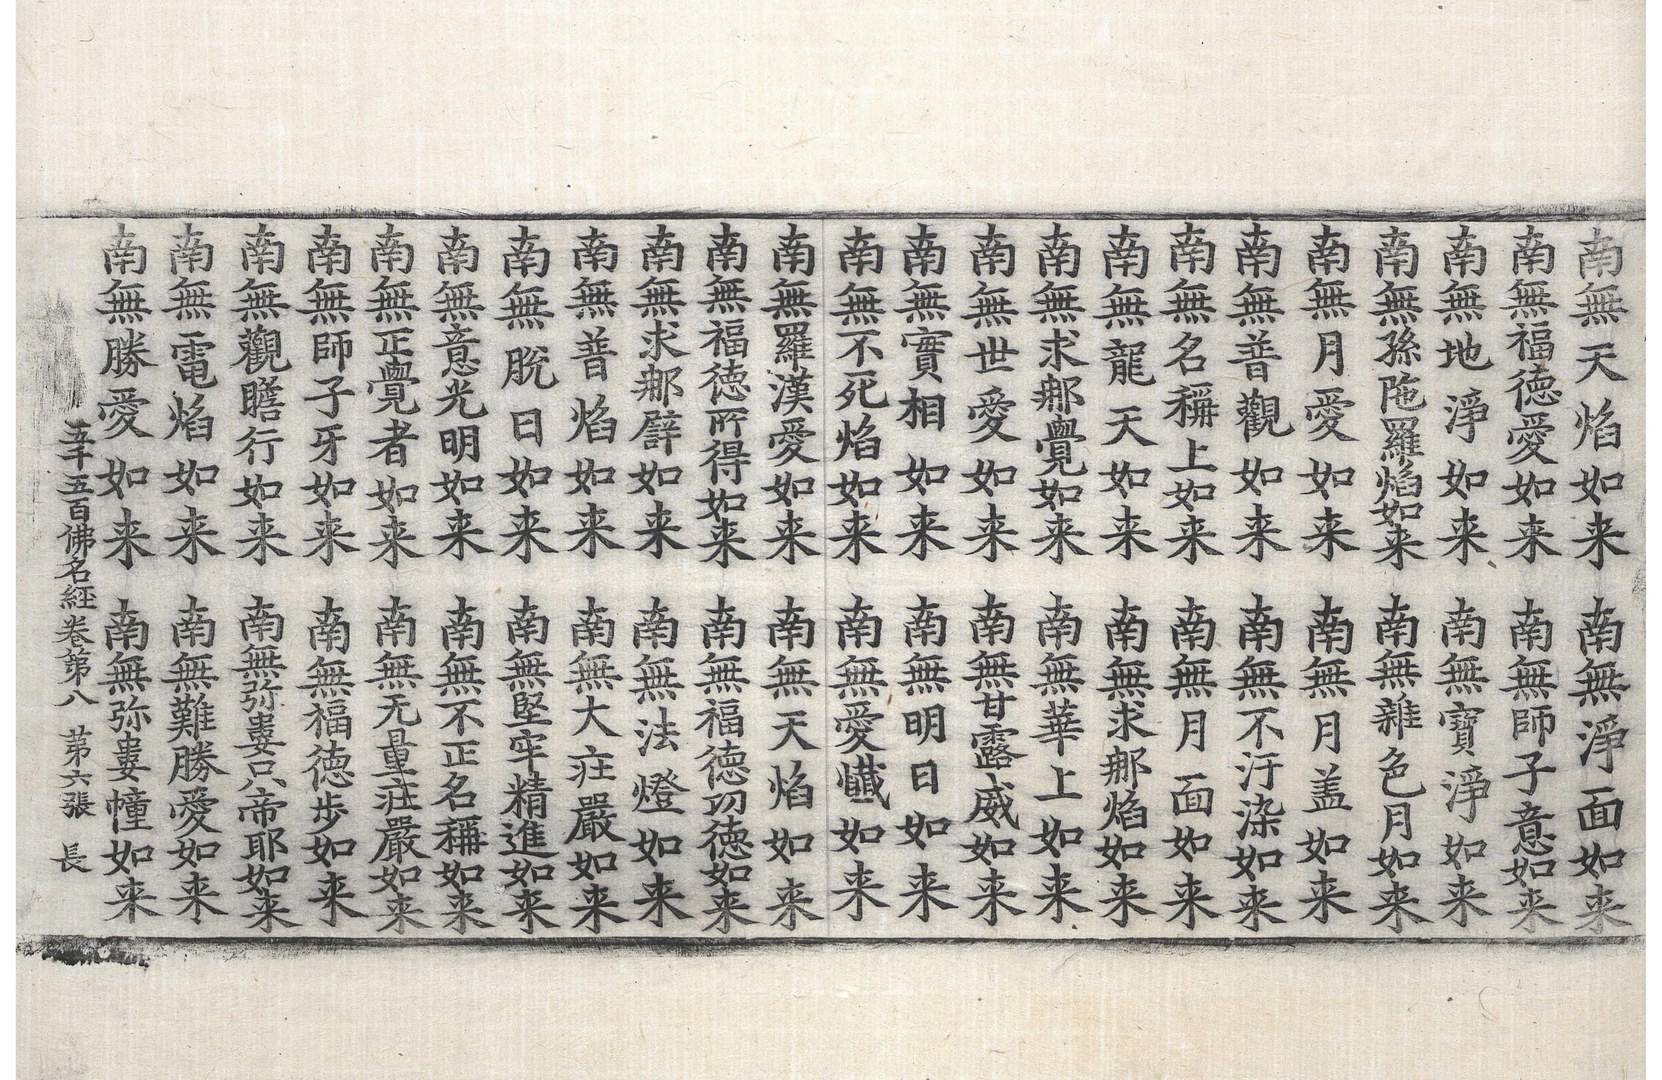 南無天焰如来 南無淨面如来
南無福德愛如来 南無師子意如来
南無地淨如来 南無寶淨如来
南無孫陁羅焰如来 南無雜色月如来
南無月愛如来 南無月盖如来
南無普觀如来 南無不汙染如来
南無名稱上如来 南無月面如来
南無龍天如来 南無求那焰如来
南無求那覺如来 南無華上如来
南無世愛如来 南無甘露威如来
南無實相如来 南無明日如来
南無不死焰如来 南無愛懴如来
南無羅漢愛如来 南無天焰如来
南無福德所得如来 南無福德功德如来
南無求那譬如来 南無法燈如来
南無普焰如来 南無大莊嚴如来
南無脫日如来 南無堅牢精進如来
南無意光明如来 南無不正名稱如来
南無正覺者如来 南無无量莊嚴如来
南無師子牙如来 南無福德步如来
南無觀瞻行如来 南無弥婁只帝耶如来
南無電焰如来 南無難勝愛如来
南無勝愛如来 南無弥婁幢如来
五千五百佛名経卷第八 第六張 長